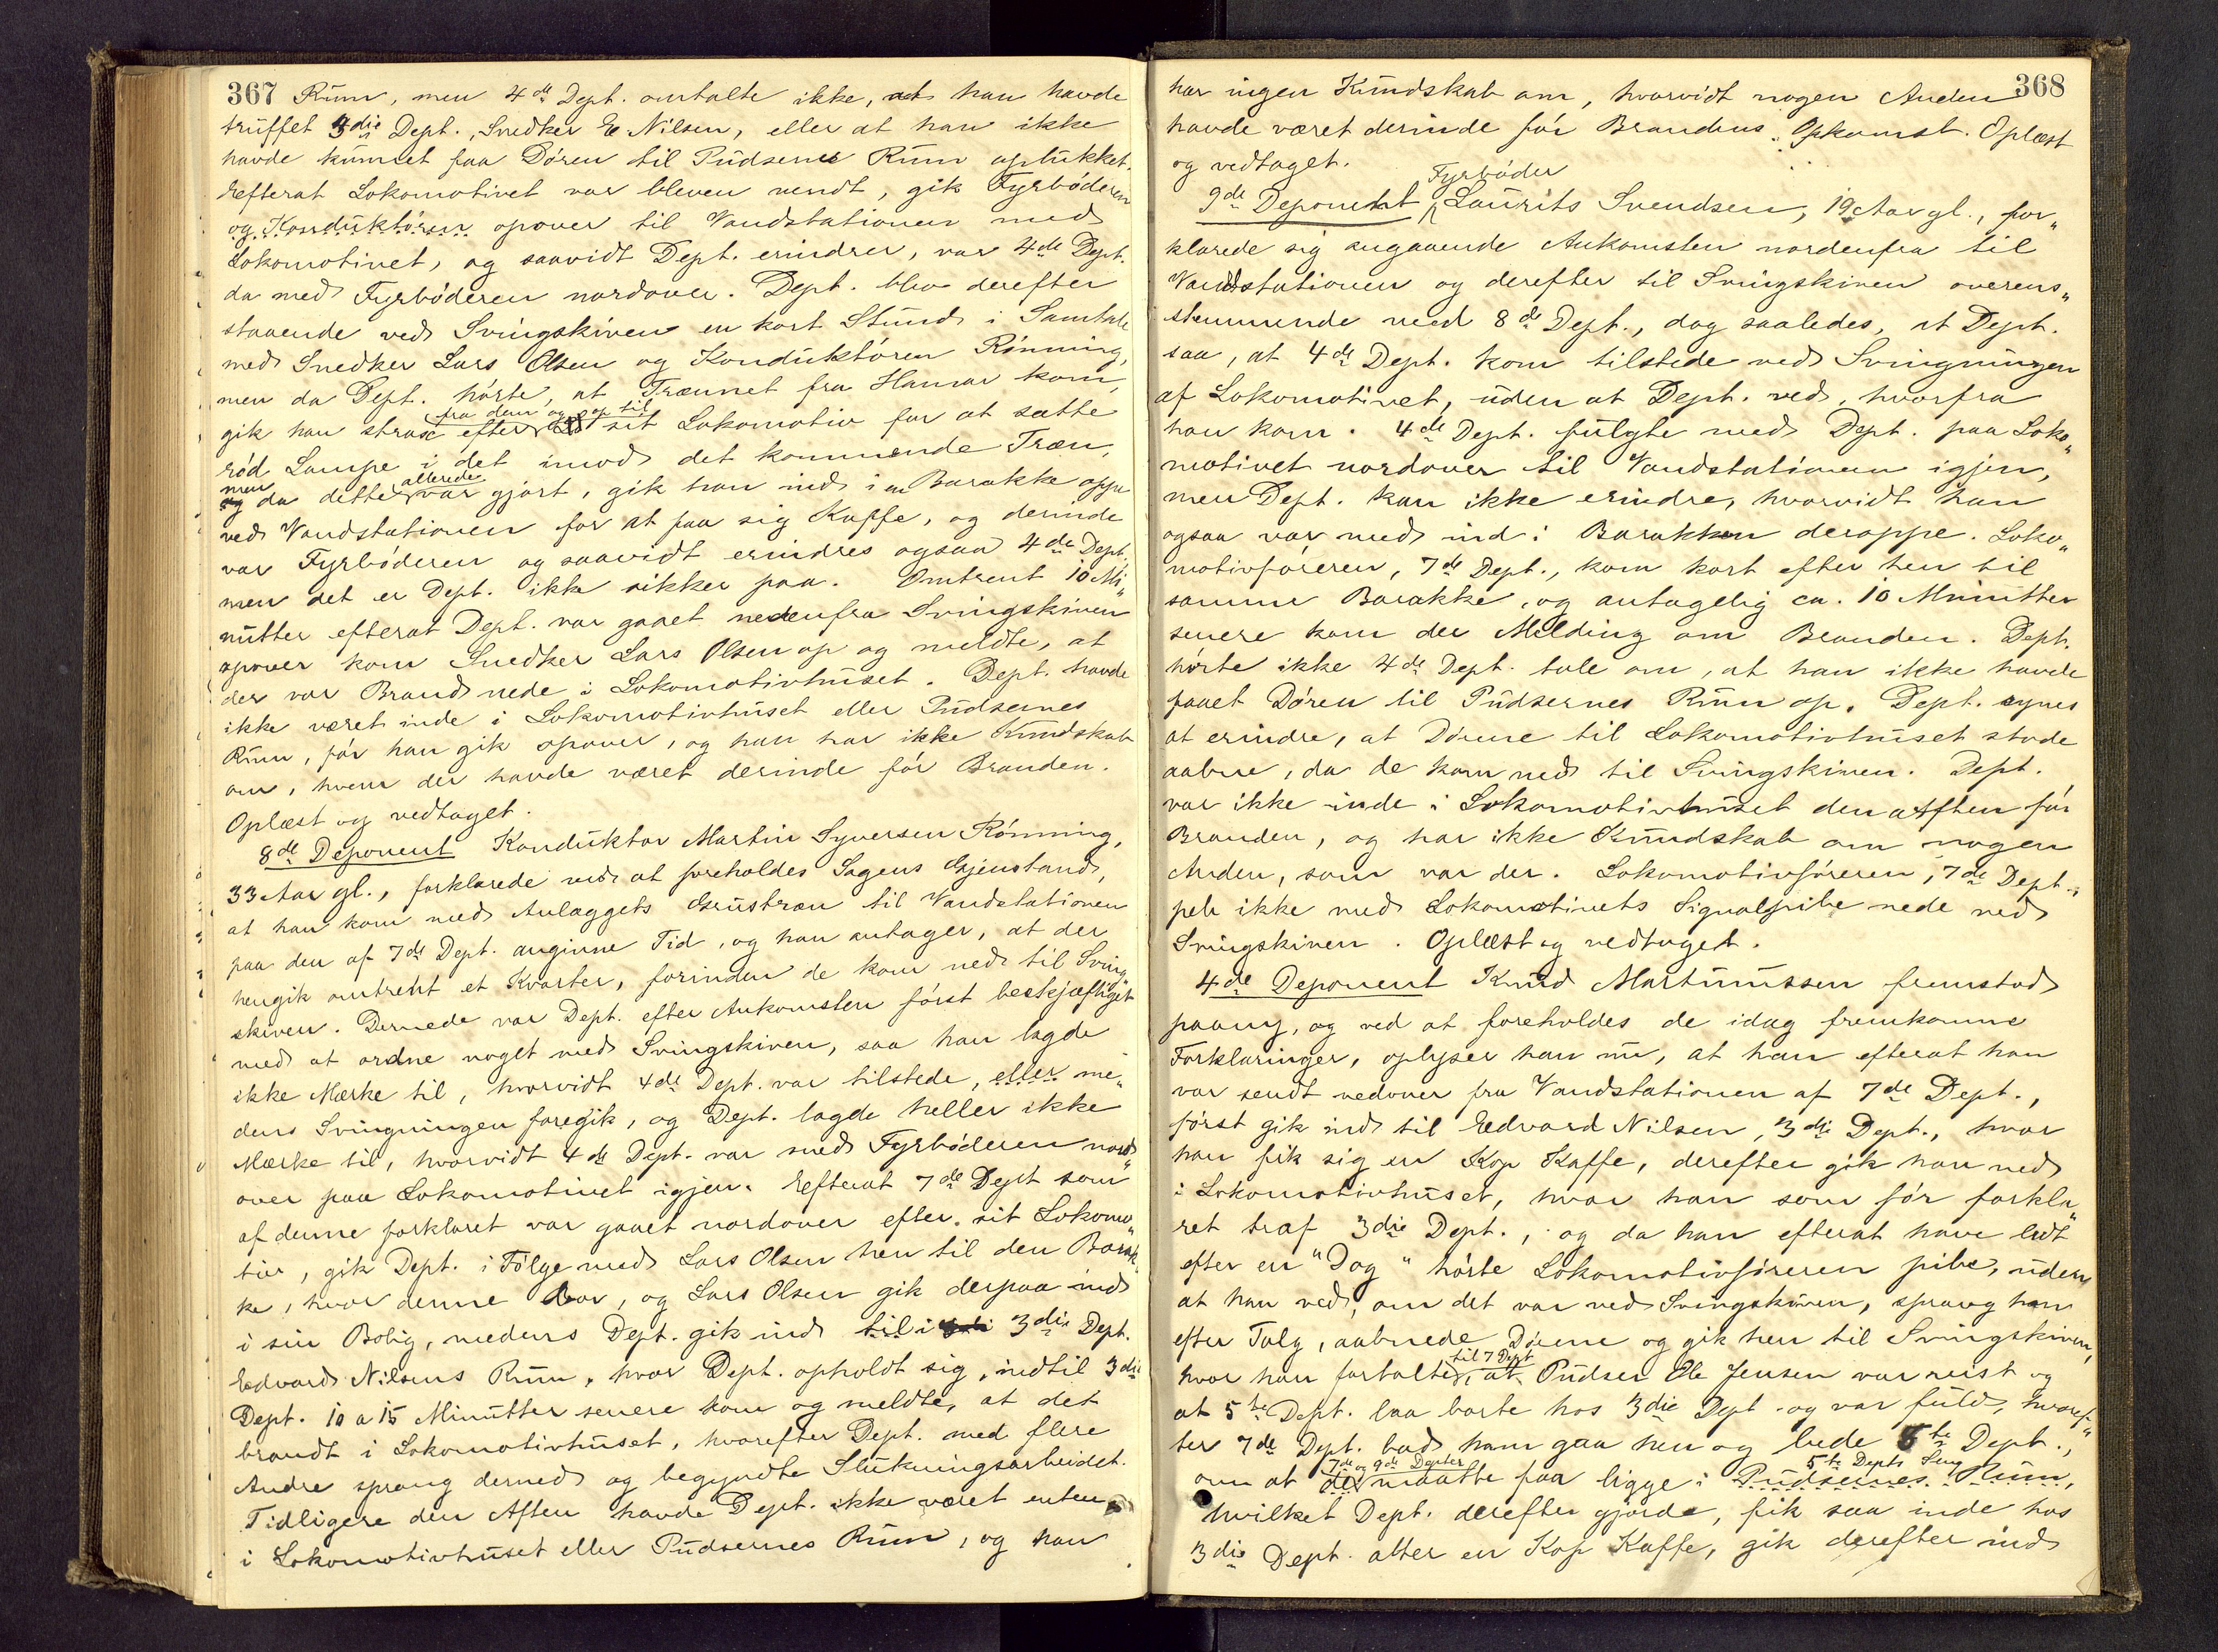 367 Rum, men 4de Dept. omtalte ikke, at han havde
truffet 3die Dept., Snedker E. Nilsen, eller at han ikke
havde kunnet faa Døren til Pudsernes Rum oplukket.
Efterat Lokomotivet var bleven vendt, gik Fyrbøderen
og Konduktøren opover til Vandstationen med
Lokomotivet, og saavidt Dept. erindrer, var 4de Dept.
da med Fyrbøderen nordover. Dept. blev derefter
staaende ved Svingskiven en kort Stund i Samtale
med Snedker Lars Olsen og Konduktøren Rønning,
men da Dept. hørte, at Trænnet fra Hamar kom,
fra dem og op til
gik han strax efter sit Lokomotiv for at sætte
rød Lampe i det imod det kommende Træn,
men allerede
da dette var gjort, gik han ind i en Barakke oppe
ved Vandstationen for at faa sig Kaffe, og derinde
var Fyrbøderen og saavidt erindres ogsaa 4de Dept.,
men det er Dept. ikke sikker paa. Omtrent 10 Mi„
nutter efterat Dept. var gaaet nedenfra Svingskiven
opover kom Snedker Lars Olsen op og meldte, at
der var Brand nede i Lokomotivhuset. Dept. havde
ikke været inde i Lokomotivhuset eller Pudsernes
Rum, før han gik opover, og han har ikke Kundskab
om, hvem der havde været derinde før Branden.
Oplæst og vedtaget.
8de Deponent Konduktør Martin Syversen Rønning,
33 Aar gl., forklarede ved at foreholdes Sagens Gjenstand,
at han kom med Anlæggets Grustræn til Vandstationen
paa den af 7de Dept. angivne Tid, og han antager, at der
hengik omtrent et Kvarter, forinden de kom ned til Sving„
skiven. Dernede var Dept. efter Ankomsten først beskjæftiget
med at ordne noget med Svingskiven, saa han lagde
ikke Mærke til, hvorvidt 4de Dept. var tilstede, eller me„
dens Svingningen foregik, og Dept. lagde heller ikke
Mærke til, hvorvidt 4de Dept. var med Fyrbøderen nord„
over paa Lokomotivet igjen. Efterat 7de Dept som
af denne forklaret var gaaet nordover efter sit Lokomo„
tiv, gik Dept. i Følge med Lars Olsen hen til den Barak„
ke, hvor denne bor, og Lars Olsen gik derpaa ind
i sin Bolig, medens Dept. gik ind til i 3die Dept.
Edvard Nilsens Rum, hvor Dept. opholdt sig, indtil 3die
Dept. 10 a 15 Minutter senere kom og meldte, at det
brandt i Lokomotivhuset, hvorefter Dept. med flere
Andre sprang derned og begyndte Slukningsarbeidet.
Tidligere den Aften havde Dept. ikke været enten
i Lokomotivhuset eller Pudsernes Rum, og han
368
har ingen Kundskab om, hvorvidt nogen Anden
havde været derinde før Brandens Opkomst. Oplæst
og vedtaget.
Fyrbøder
9de Deponent Laurits Svendsen, 19 Aar gl., for„
klarede sig angaaende Ankomsten nordenfra til
Vandstationen og derefter til Svingskiven overens„
stemmende med 8de Dept., dog saaledes, at Dept.
saa, at 4de Dept. kom tilstede ved Svingningen
af Lokomotivet, uden at Dept. ved, hvorfra
han kom. 4de Dept. fulgte med Dept. paa Loko„
motivet nordover til Vandstationen igjen,
men Dept. kan ikke erindre, hvorvidt han
ogsaa var med ind i Barakken deroppe. Loko„
motivføreren, 7de Dept., kom kort efter hen til
samme Barakke, og antagelig ca. 10 Minutter
senere kom der Melding om Branden. Dept.
hørte ikke 4de Dept. tale om, at han ikke havde
faaet Døren til Pudsernes Rum op. Dept. synes
at erindre, at Dørene til Lokomotivhuset stode
aabne, da de kom ned til Svingskiven. Dept.
var ikke inde i Lokomotivhuset den Aften før
Branden, og har ikke Kundskab om nogen
Anden, som var der. Lokomotivføreren, 7de Dept.,
peb ikke med Lokomotivets Signalpibe nede ved
Svingskiven. Oplæst og vedtaget.
4de Deponent Knud Martinussen fremstod
paany, og ved at foreholdes de idag fremkomne
Forklaringer, oplyser han nu, at han efterat han
var sendt nedover fra Vandstationen af 7de Dept.,
først gik ind til Edvard Nilsen, 3die Dept., hvor
han fik sig en Kop Kaffe, derefter gik han ned
i Lokomotivhuset, hvor han som før forkla„
ret traf 3die Dept., og da han efterat have ledt
efter en "Dog" hørte Lokomotivføreren pibe, uden
at han ved, om det var ved Svingskiven, sprang han
efter Talg, aabnede Dørene og gik hen til Svingskiven,
til 7 Dept
hvor han fortalte, at Pudser Ole Jensen var reist og
at 5te Dept. laa borte hos 3die Dept. og var fuld, hvoref„
ter 7de Dept. bad ham gaa hen og bede 5te Dept.,
7de og 9de Depter 5te Depts Seng
om at de maatte faa ligge i Pudsernes Rum,
hvilket Dept. derefter gjorde, fik saa inde hos
3die Dept. atter en Kop Kaffe, gik derefter ind